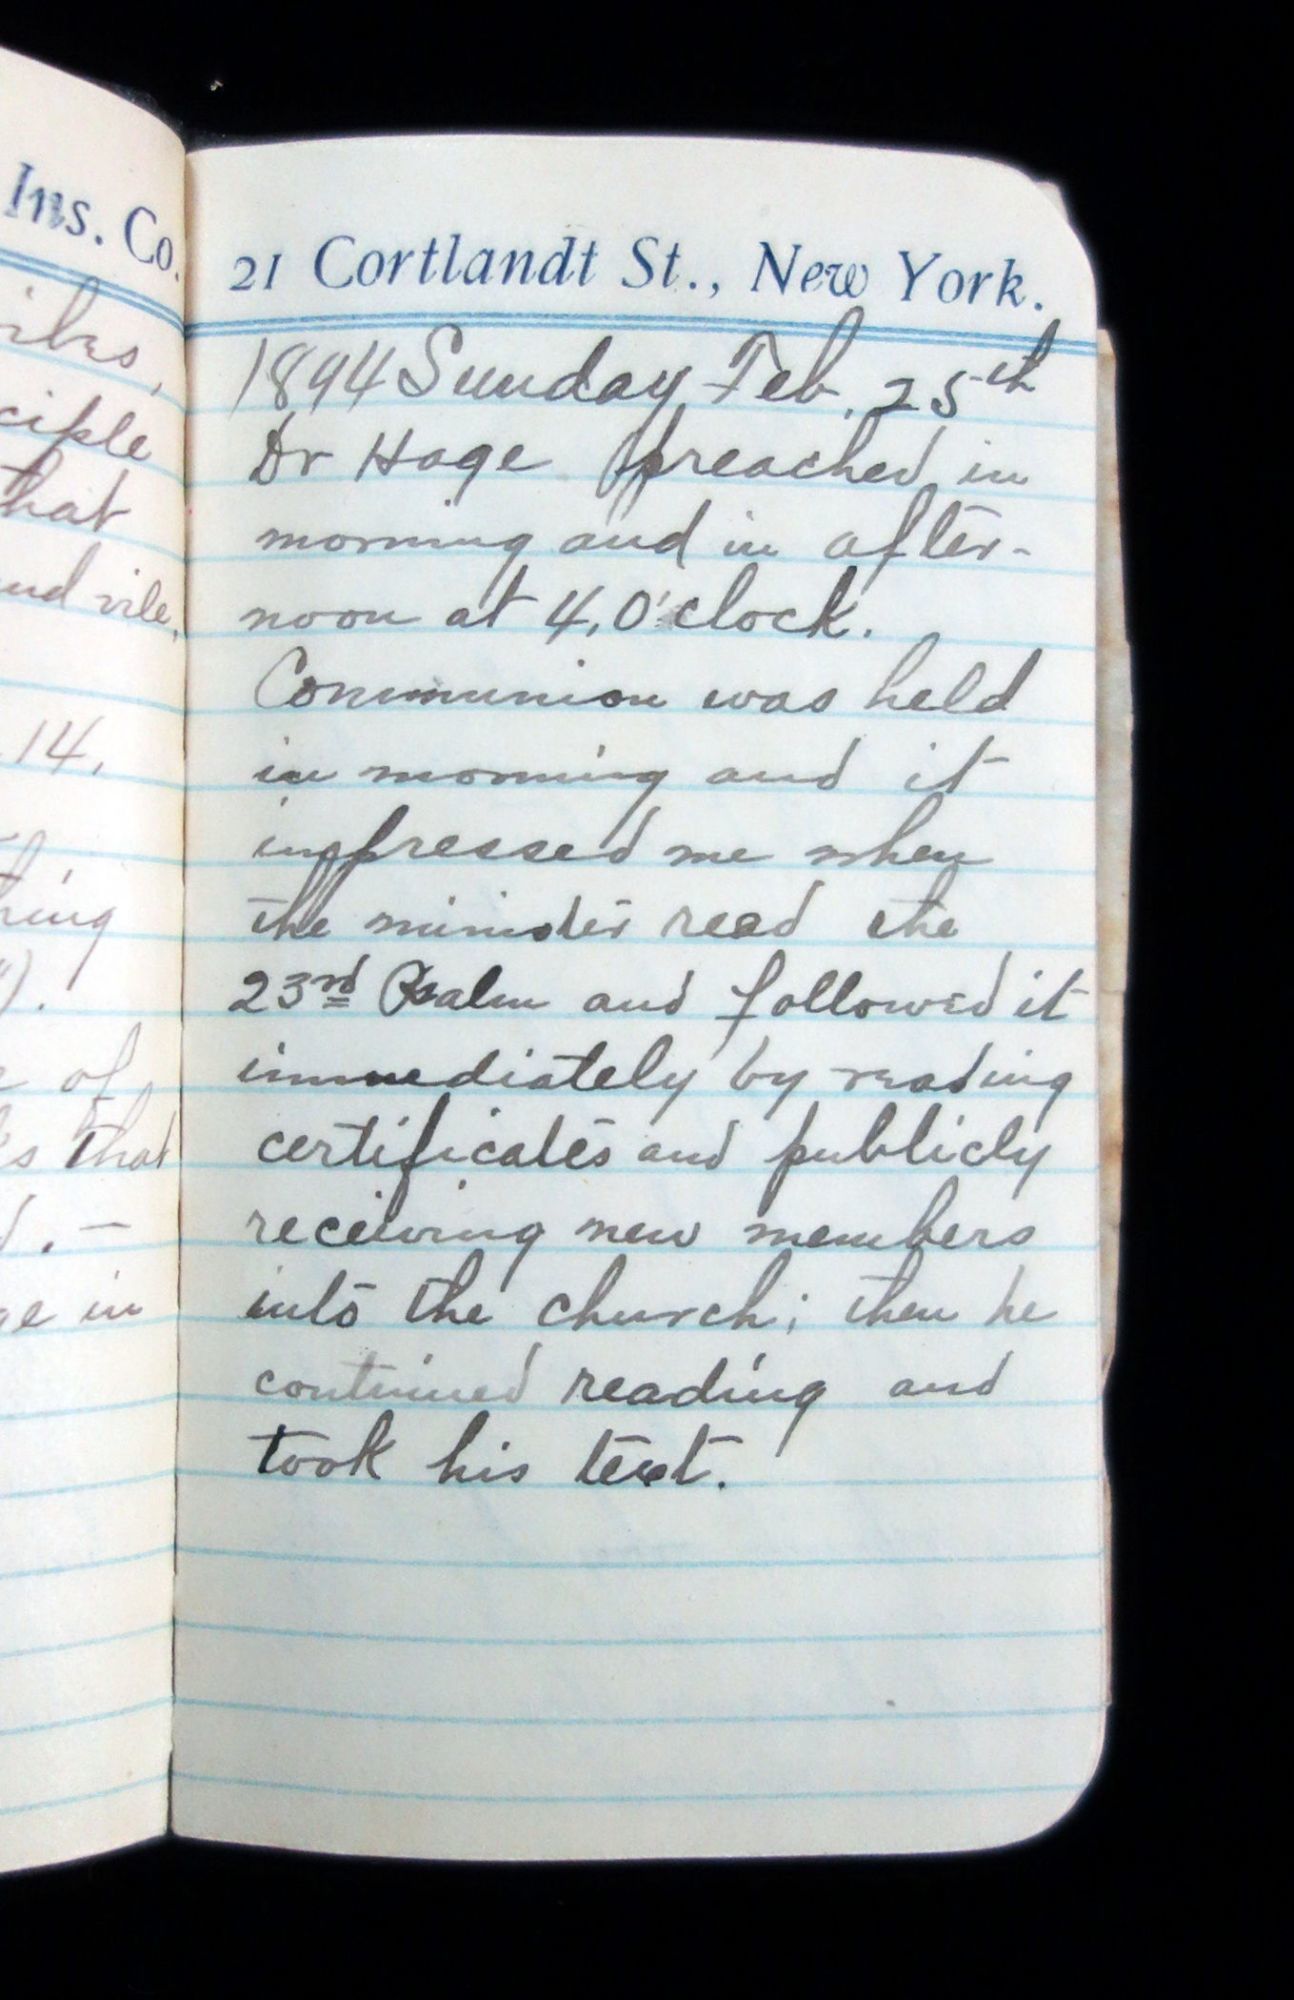 Ins. Co.
ciple
that
and vile,
14,
of
that
in
21 Cortlandt St., New York.
1894 Sunday Feb. 25th
Dr Hoge preached in
morning and in after-
noon at 4, O'clock.
Communion was held
in morning and it
impressed me when
the minister read the
23rd Psalm and followed it
immediately by reading
certificates and publicly
receiving new members
into the church; then he
continued reading and
took his text.